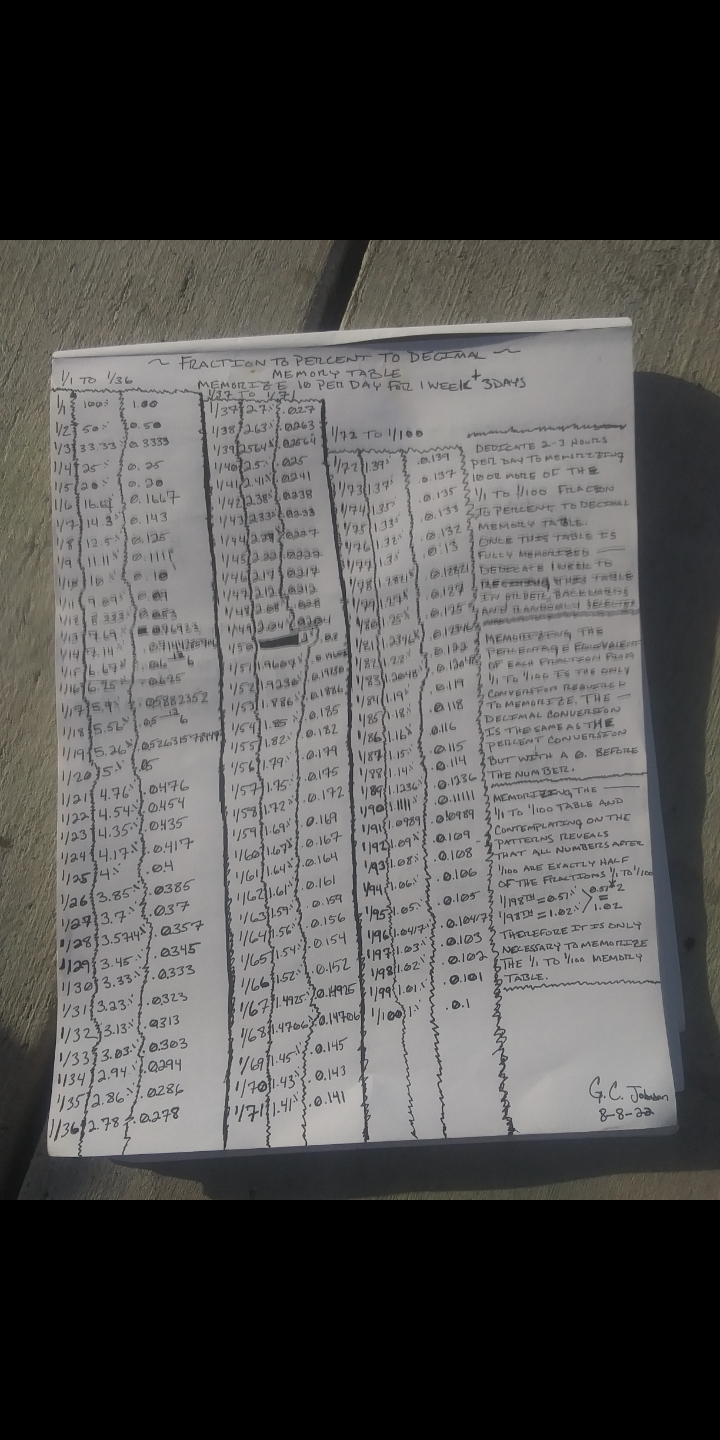 ~ FRACTION TO PERCENT TO DECIMAL ~
MEMORY TABLE
MEMORIZE 10 PER DAY FOR 1 WEEK + 3 DAYS
1/1 TO 1/36
1/1 100% 1.00
1/2 50% 0.50
1/3 33.33 0.3333
1/4 25% 0.25
1/5 20% 0.20
1/6 0.1667
1/7 14.3% 0.143
1/8 12.5% 0.125
1/9 11.11% 0.1111
1/10 10% 0.10
1/11 9.09%
1/12 8.333%
1/13 7.69 .076923
1/14 7.14%
1/15 6.67%
1/16 6.25%
1/17 5.9% .05882352
1/18 5.56%
1/19 5.26%
1/20 5% .05
1/21 4.76% .0476
1/22 4.54% .0454
1/23 4.35% .0435
1/24 4.17% .0417
1/25 4% .04
1/26 3.85% .0385
1/27 3.7% .037
1/28 3.5714% .0357
1/29 3.45% .0345
1/30 3.33% .0333
1/31 3.23% .0323
1/32 3.13% .0313
1/33 3.03% .0303
1/34 2.94% .0294
1/35 2.86% .0286
1/36 2.78% .0278
1/37 TO 1/71
1/37 2.7% .027
1/38 2.63% .0263
1/39 2.564% .02564
1/40 2.5% .025
1/41 2.41% .0241
1/42 2.38% .0238
1/43 2.33% .0233
1/44 .0227
1/45 2.22% .0222
1/46 2.17% .0217
1/47 2.12% .0212
1/48 2.08%
1/49 2.04% .0204
1/50 2%
1/51 1.9607%
1/52 1.9230%
1/53 1.886% 0.1886
1/54 1.85% 0.185
1/55 1.82% 0.182
1/56 1.79% 0.179
1/57 1.75% 0.175
1/58 1.72% 0.172
1/59 1.69% 0.169
1/60 1.67% 0.167
1/61 1.64% 0.164
1/62 1.61% 0.161
1/63 1.59% 0.159
1/64 1.56% 0.156
1/65 1.54% 0.154
1/66 1.52% 0.152
1/67 1.4925% 0.14925
1/68 1.4706% 0.14706
1/69 1.45% 0.145
1/70 1.43% 0.143
1/71 1.41% 0.141
1/72 TO 1/100
1/72 1.39% .0.139
1/73 1.37% .0.137
1/74 1.35% .0.135
1/75 1.33% .0.133
1/76 1.32% .0.132
1/77 1.3% .0.13
1/78 1.2821% .0.12821
1/79 1.27% .0.127
1/80 1.25% .0.125
1/81 1.2346% .0.12346
1/82 1.22% .0.122
1/83 1.2048% .0.12048
1/84 1.19% .0.119
1/85 1.18% .0.118
1/86 1.16% .0.116
1/87 1.15% .0.115
1/88 1.14% .0.114
1/89 1.1236% .0.1236
1/90 1.1111% .0.11111
1/91 1.0989 .0.10989
1/92 1.09% .0.109
1/93 1.08% .0.108
1/94 1.06% .0.106
1/95 1.05% .0.105
1/96 1.0417% .0.10417
1/97 1.03% .0.103
1/98 1.02% .0.102
1/99 1.01% .0.101
1/100 1% .0.1
DEDICATE 2-3 HOURS
PER DAY TO MEMORIZING
10 OR MORE OF THE
1/1 TO 1/100 FRACTION
TO PERCENT TO DECIMAL
MEMORY TABLE.
ONCE THIS TABLE IS
FULLY MEMORIZED
DEDICATE 1 WEEK TO
RECITING THIS TABLE
IN ORDER, BACKWARDS
AND RANDOMLY SELECTED
MEMORIZING THE
PERCENTAGE EQUIVALENT
OF EACH FRACTION FROM
1/1 TO 1/100 IS THE ONLY
CONVERSION REQUIRED
TO MEMORIZE, THE
DECIMAL CONVERSION
IS THE SAME AS THE
PERCENT CONVERSION
BUT WITH A 0. BEFORE
THE NUMBER.
MEMORIZING THE
1/1 TO 1/100 TABLE AND
CONTEMPLATING ON THE
PATTERNS REVEALS
THAT ALL NUMBERS AFTER
1/100 ARE EXACTLY HALF
OF THE FRACTIONS 1/1 TO 1/100
1/198TH = 0.51% > 0.51*2
1/98TH = 1.02% = 1.02
THEREFORE IT IS ONLY
NECESSARY TO MEMORIZE
THE 1/1 TO 1/100 MEMORY
TABLE.
G.C. Johnson
8-8-22